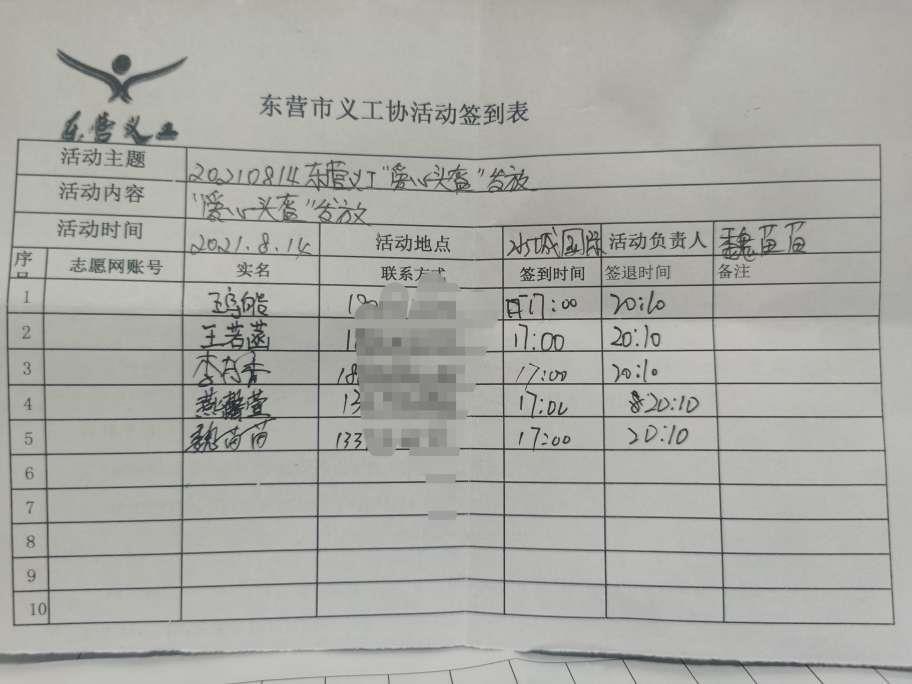 东营义工
东营市义工协活动签到表
活动主题 20210814东营义工"爱心头盔"发放
活动内容 "爱心头盔"发放
活动时间 2021.8.14 活动地点 水城国际 活动负责人 魏苗苗
序号 志愿网账号 实名 联系方式 签到时间 签退时间 备注
1 17:00 20:10
2 王若菡 1 17:00 20:10
3 18 17:00 20:10
4 燕馨萱 13 17:00 20:10
5 魏苗苗 133 17:00 20:10
6
7
8
9
10